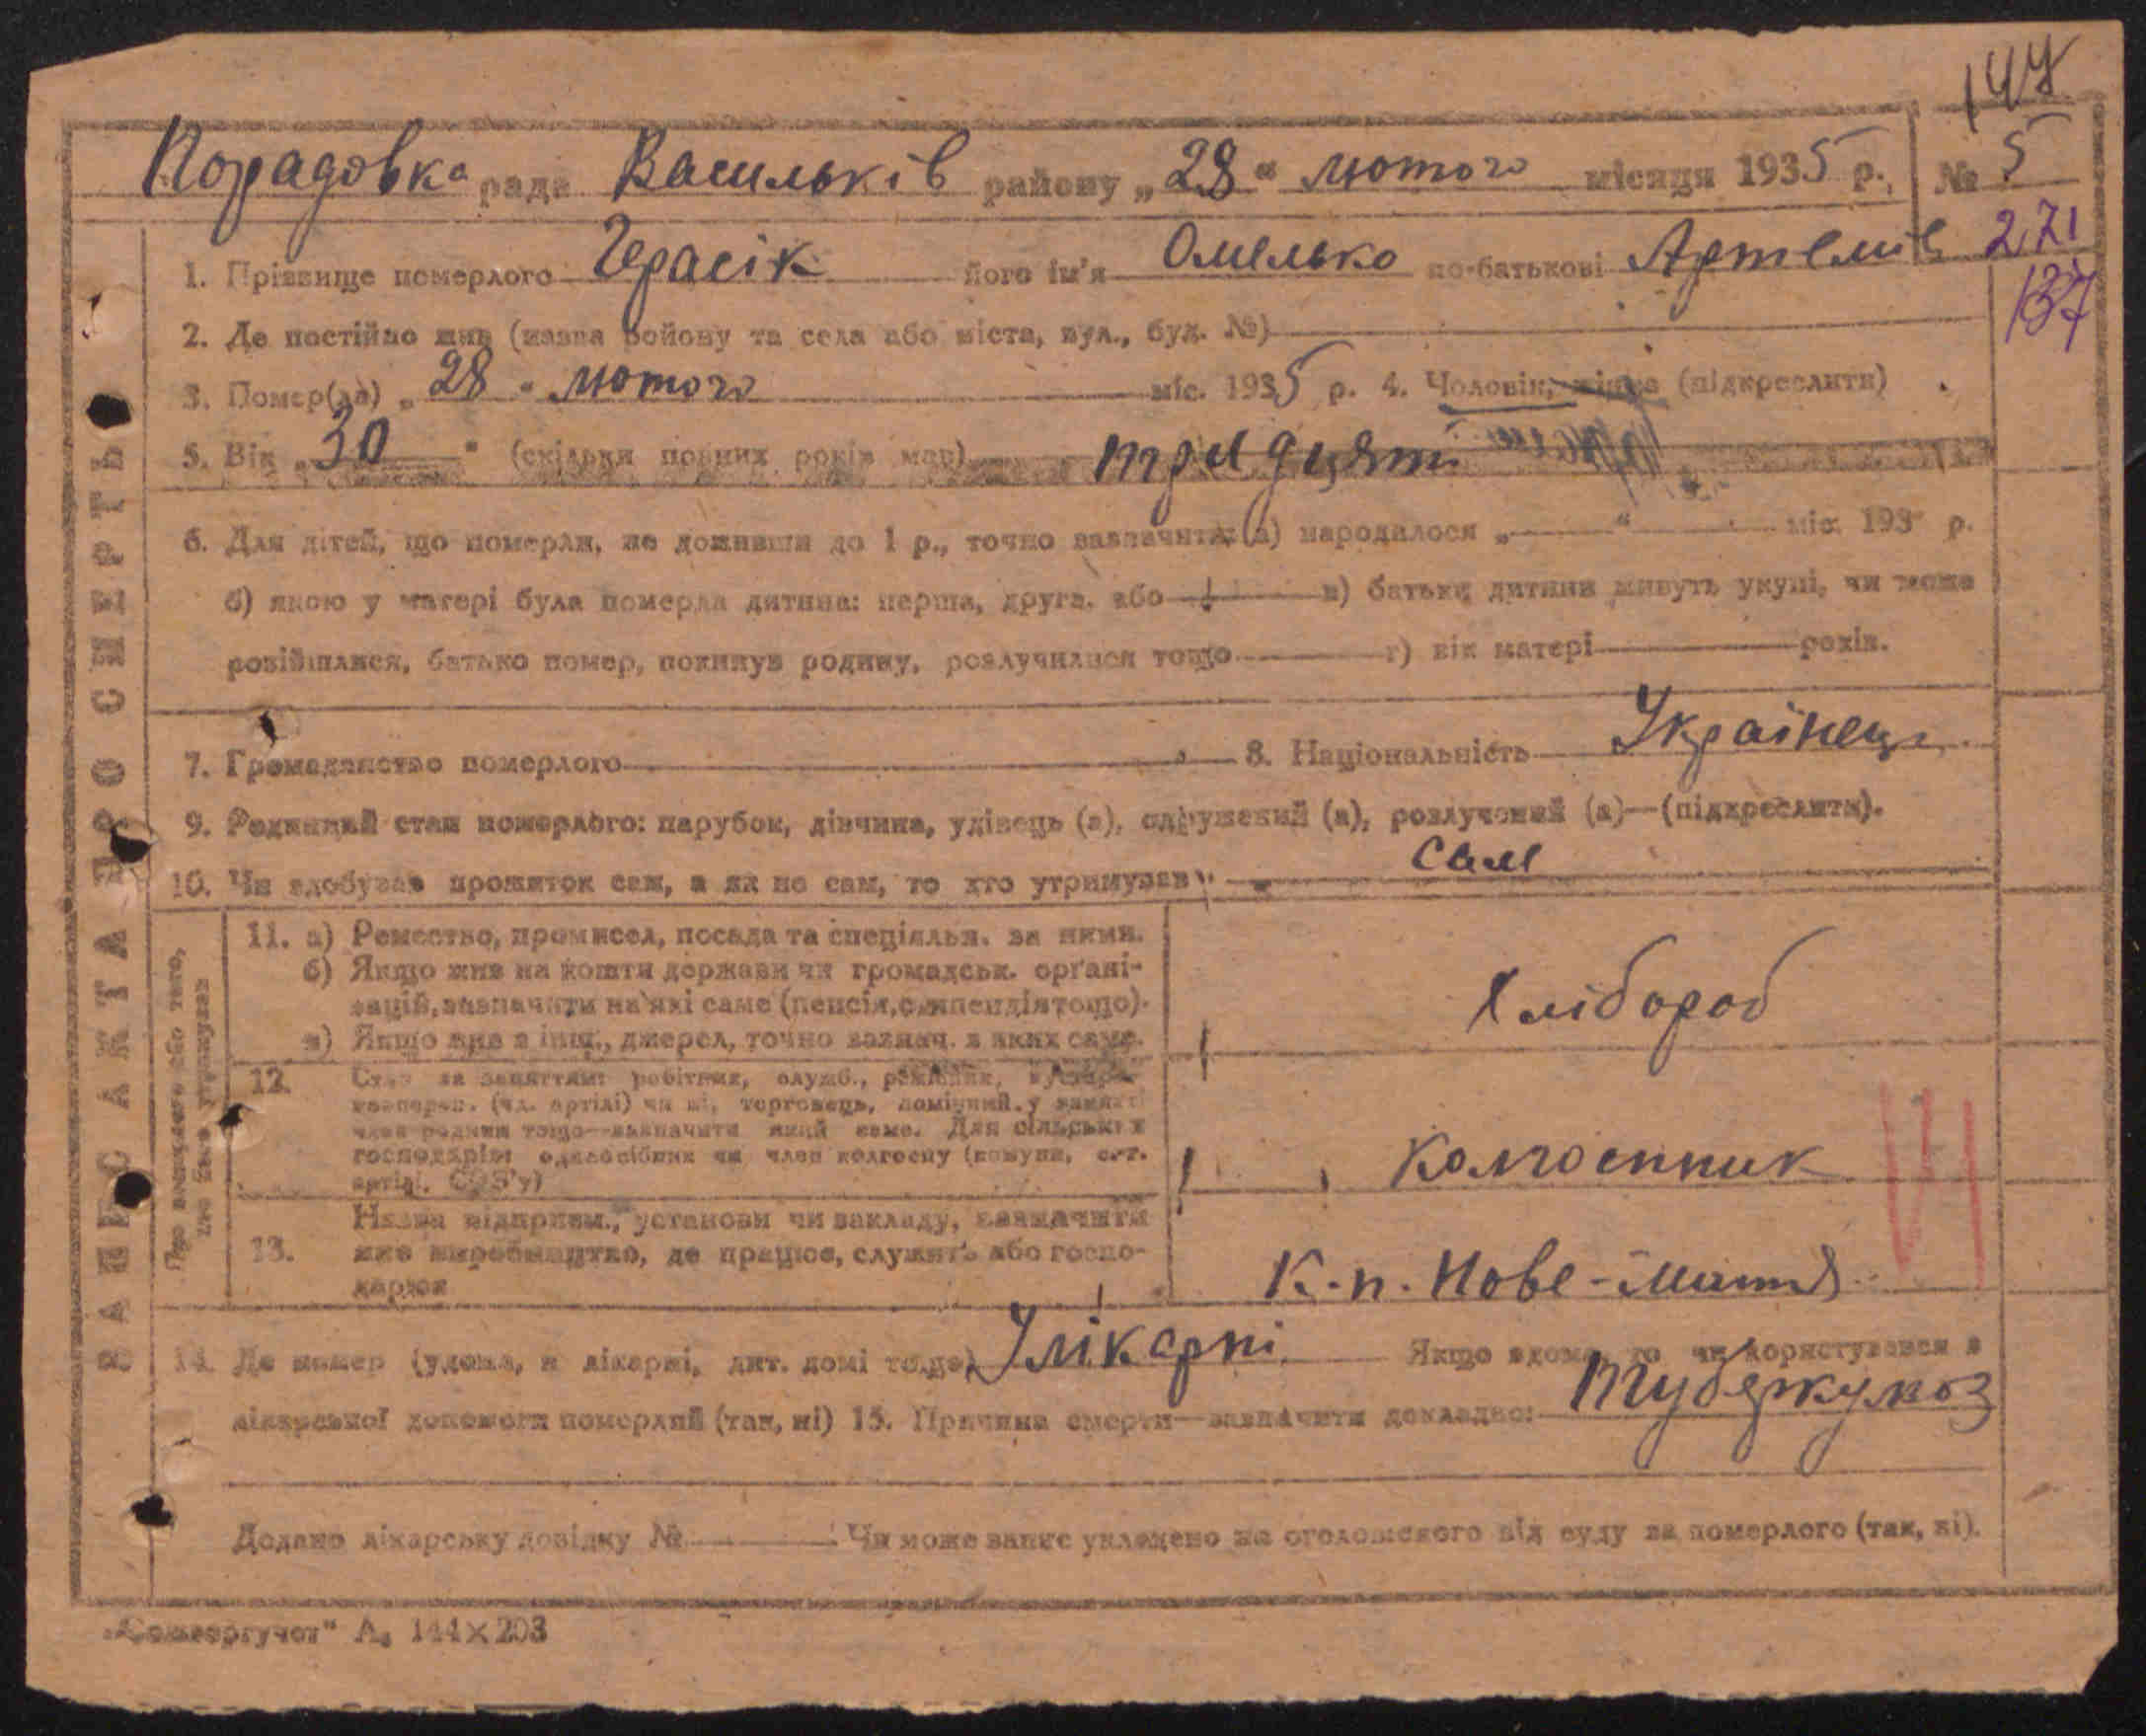 147
Порадовка рада Васильків району „28“ лютого місяця 1935 р., № 5
271
1. Прізвище померлого Герасік його ім'я Омелько по-батькові Артемів
137
2. Де постійно жив (назва району та села або міста, вул., буд. №)
3. Помер(ла) „28“ лютого міс. 1935 р. 4. Чоловік, жінка (підкреслити)
5. Вік „30“ (скільки повних років мав) тридцять
6. Для дітей, що померли, не доживши до 1 р., точно зазначити: а) народилося „ “ міс. 193 р.
б) якою у матері була померла дитина: перша, друга, або в) батьки дитини живуть укупі, чи може
розійшлися, батько помер, покинув родину, розлучилися тощо г) вік матері років.
7. Громадянство померлого 8. Національність Українець
9. Родинний стан померлого: парубок, дівчина, удівець (а), одружений (а), розлучений (а)—(підкреслити).
10. Чи здобував прожиток сам, а як не сам, то хто утримував сам
11. а) Ремество, промисел, посада та спеціяльн. за ними.
б) Якщо жив на кошти держави чи громадськ. органі-
зацій, зазначити на які саме (пенсія, стипендія тощо).
в) Якщо жив з інш., джерел, точно зазнач. з яких саме.
Хлібороб
12. Стан за заняттям: робітник, служб.,
(чл. артілі) чи ні, торговець,
член родини тощо—зазначити який саме. Для сільських
господарів: одноосібник чи член колгоспу (комуни, с.-г.
артілі, СОЗ'у)
Колгоспник
13. Назва відприєм., установи чи закладу, зазначити
яке виробництво, де працює, служить або госпо-
дарює
К.-п. Нове-Життя
14. Де помер (удома, в лікарні, дит. домі тощо) У лікарні Якщо вдома, то чи користувався з
лікарської допомоги померлий (так, ні) 15. Причина смерти—зазначити докладно: Туберкульоз
Додано лікарську довідку № Чи може запис укладено на оголошеного від суду за померлого (так, ні).
ЗАПИС АКТА ПРО СМЕРТЬ
А₅ 144×203